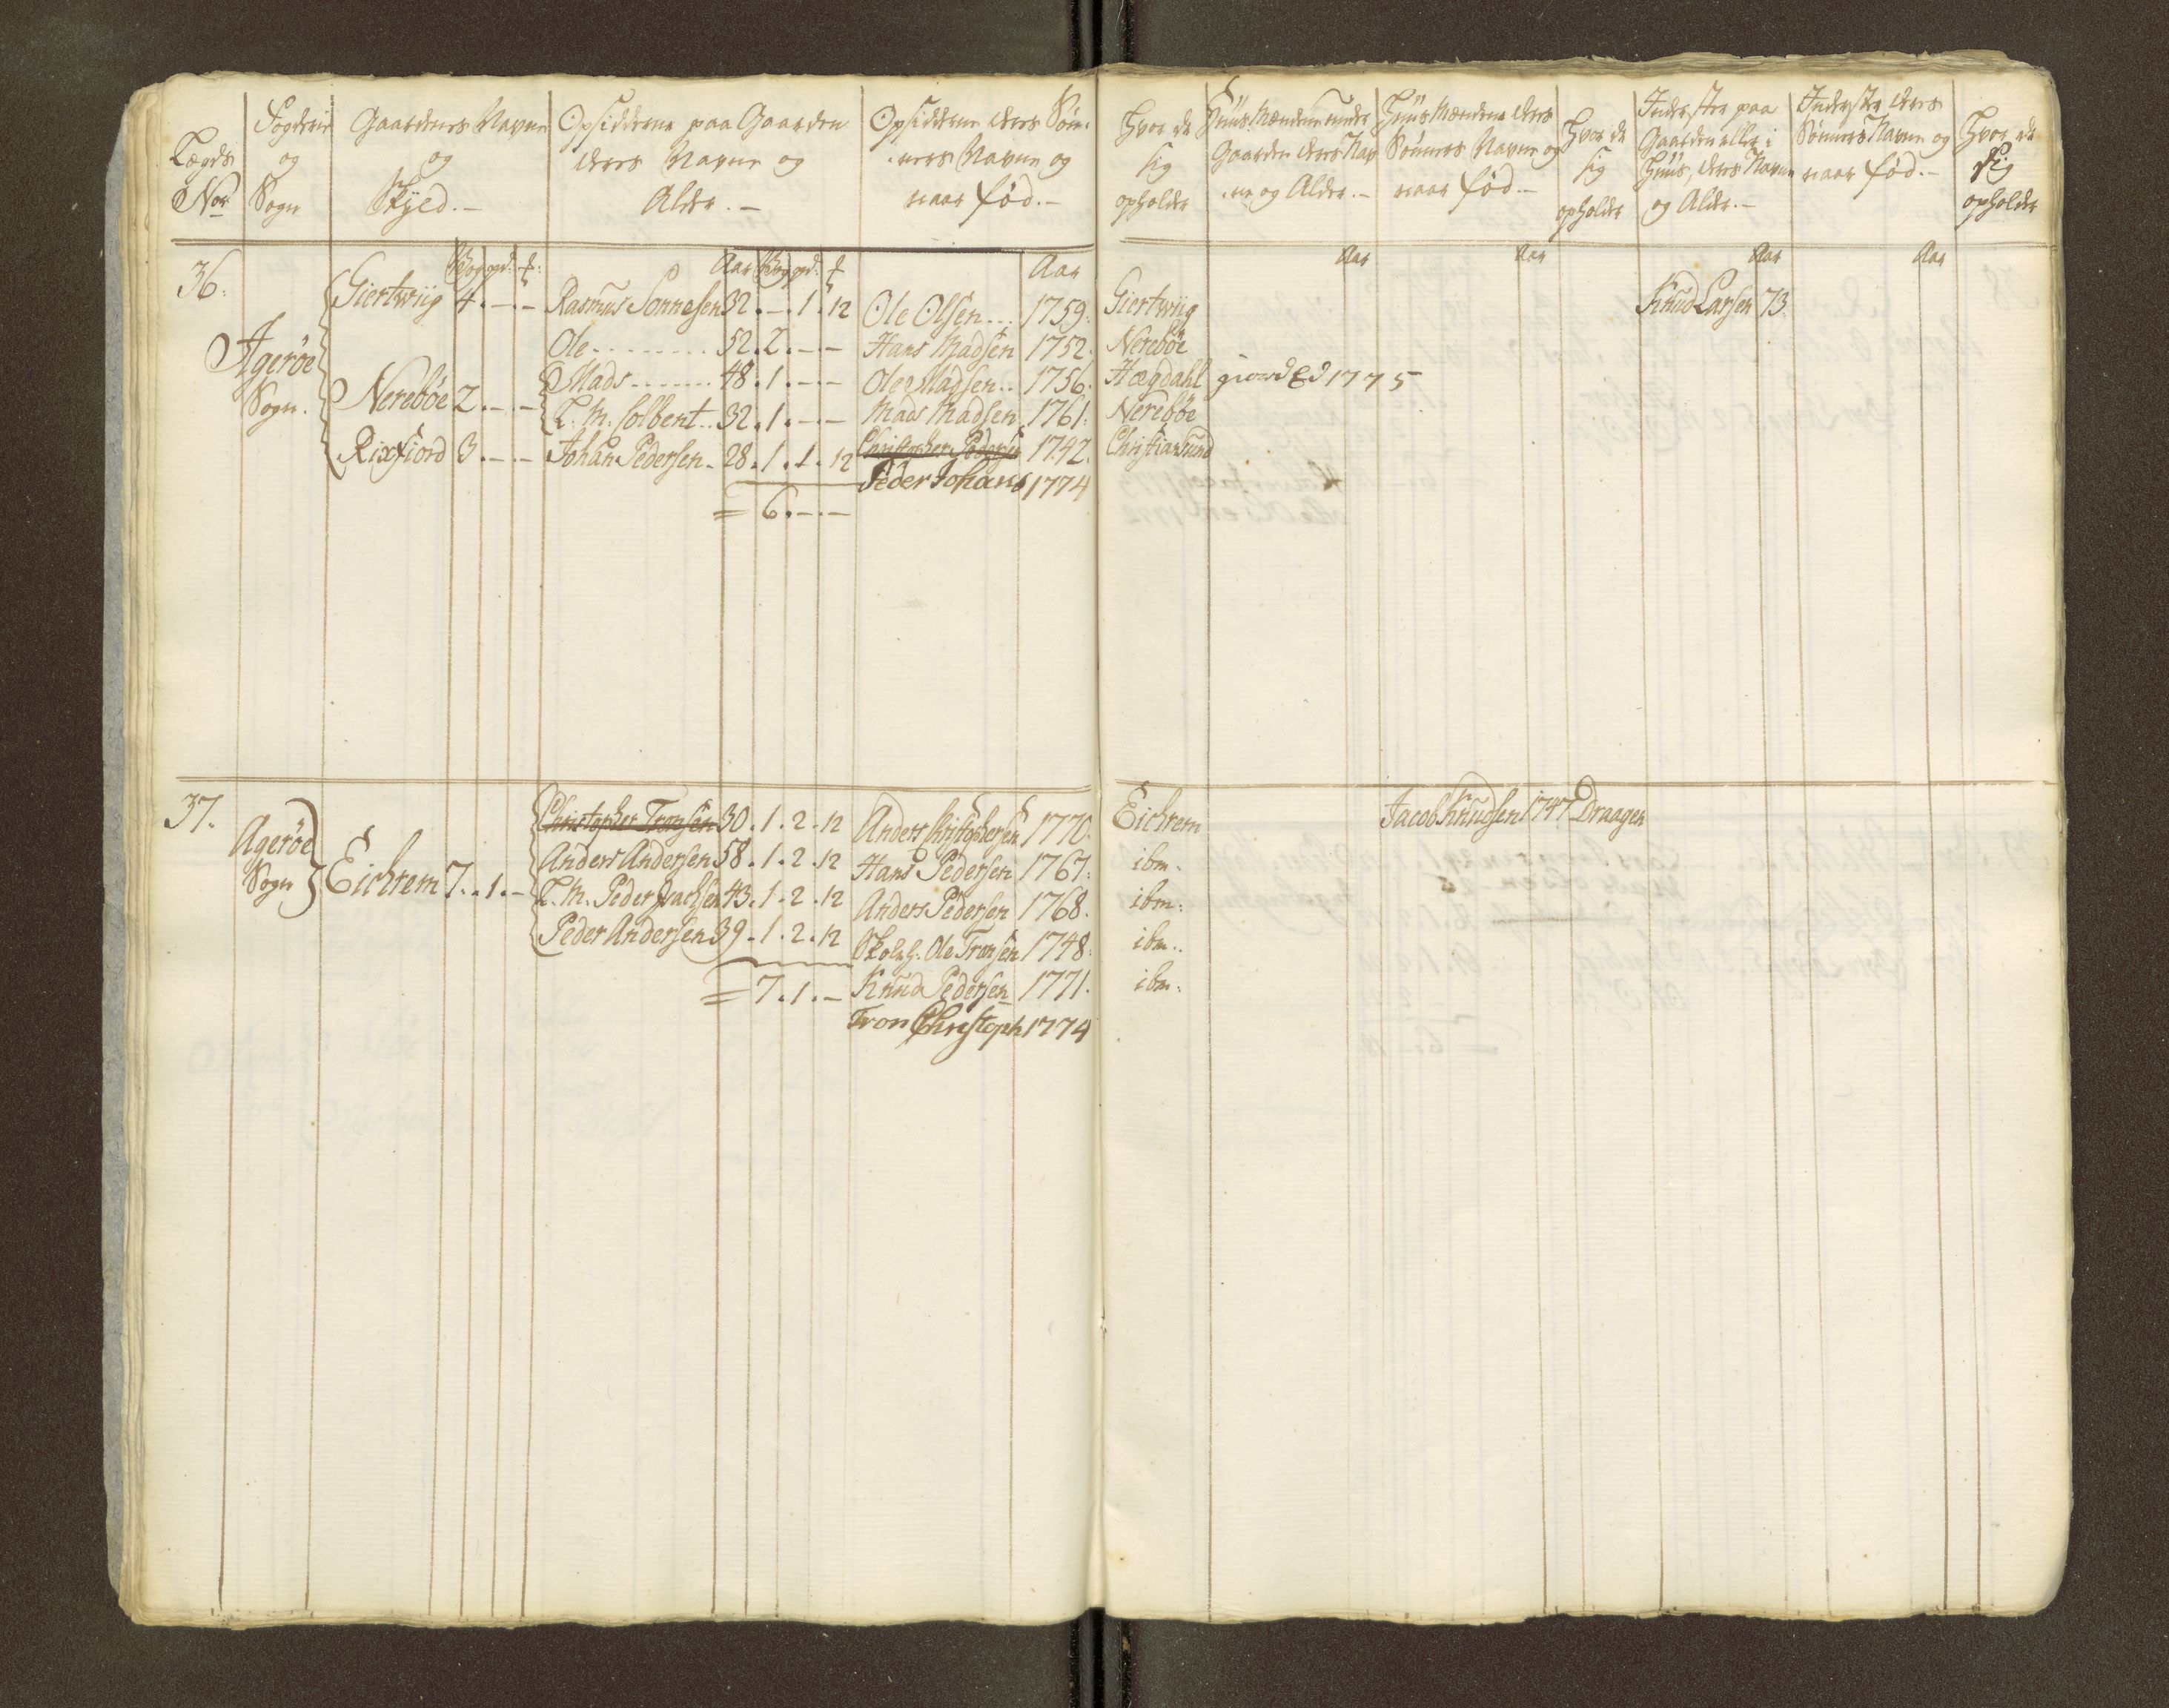 Lægds No
Fogderie og Sogn
Gaardens Navne og Skyld.
Opsidderne paa Gaarden deres Navne og Alder.
Opsidderne deres Sønners Navne og naar fød.
Hvor de sig opholder
Huus Mændene under Gaarden deres Navne og Alder.
Huus Mændene deres Sønners Navne og naar fød.
Hvor de sig opholder
Inderster paa Gaarden eller i Huus, deres Navne og Alder.
Inderster deres Sønners Navne og naar fød.
Hvor de sig opholder
Aar
Aar
Aar Aar Aar Aar
36. Giertwiig 4 . - . - Rasmus Sonnesen 32 . - . 1 . 12 Ole Olsen 1759. Giertwiig Knud Larsen 73.
Agerøe Sogn.
Ole 52 . 2 . - . - Hans Madsen 1752. Nerebøe
Nerebøe 2 . - . - Mads 48 . 1 . - . - Ole Madsen 1756. Hægdahl 1775
L. M. Colbent 32 . 1 . - . - Mads Madsen 1761. Nerebøe
Rixfiord 3 . - . - Johan Pedersen 28 . 1 . 1 . 12 Christopher Pedersen 1742. Christiansund
Peder Johans 1774
= 6 . - . -
37. Christopher Tronsen 30 . 1 . 2 . 12 Anders Christophersen 1770. Eichrem Jacob Knudsen 1747 Draagen
Agerøe Sogn Eichrem 7 . 1 . - Anders Andersen 58 . 1 . 2 . 12 Hans Pedersen 1767. ibm.
L. M. Peder Isachsen 43 . 1 . 2 . 12 Anders Pedersen 1768. ibm.
Peder Andersen 39 . 1 . 2 . 12 Skoleh. Ole Tronsen 1748. ibm.
= 7 . 1 . - Knud Pedersen 1771. ibm.
Tron Christoph 1774